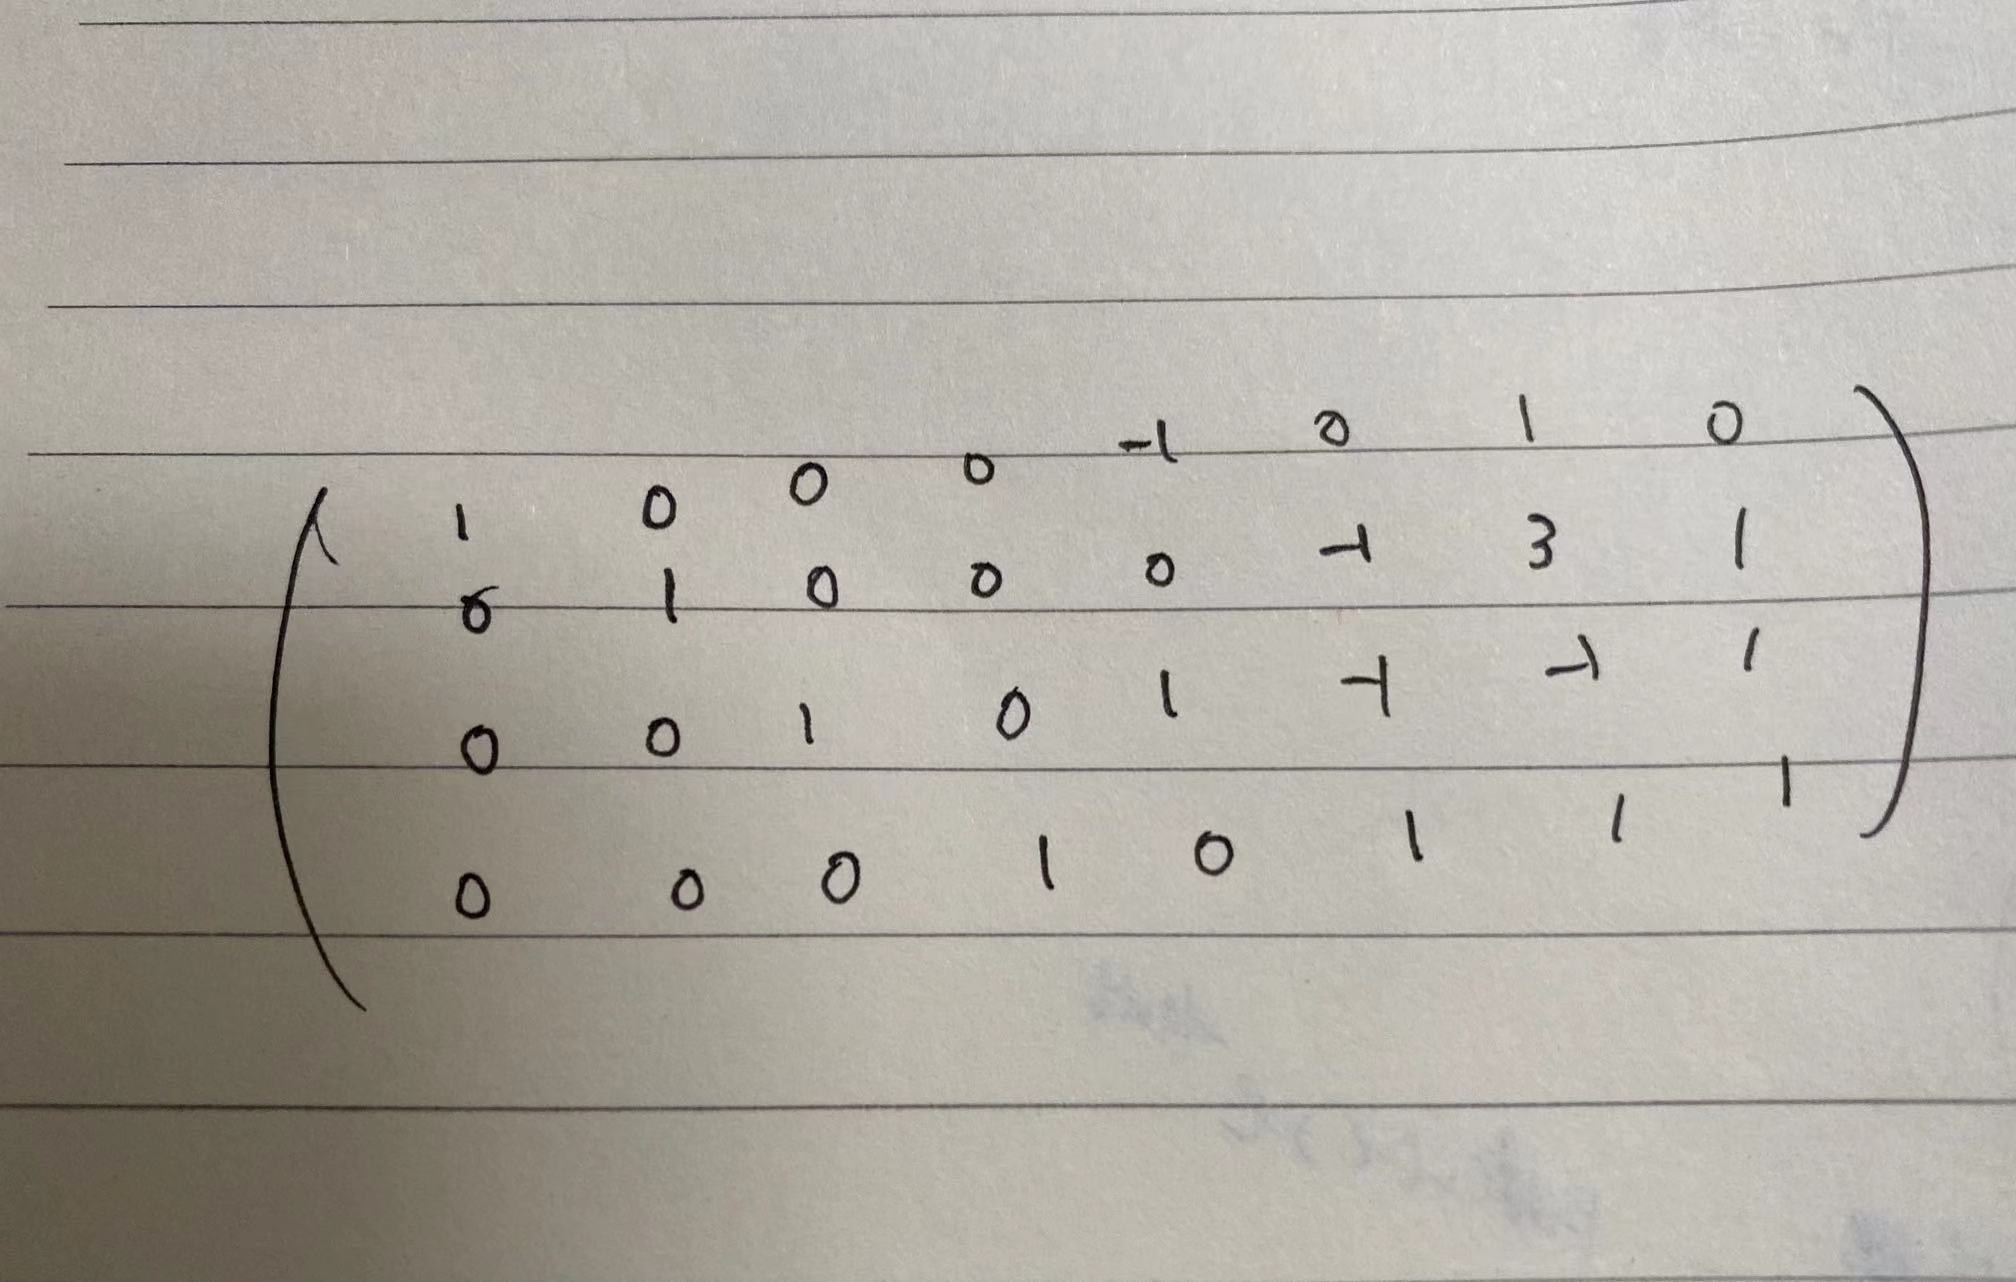 1 0 0 0 -1 0 1 0
0 1 0 0 0 -1 3 1
0 0 1 0 1 -1 -1 1
0 0 0 1 0 1 1 1